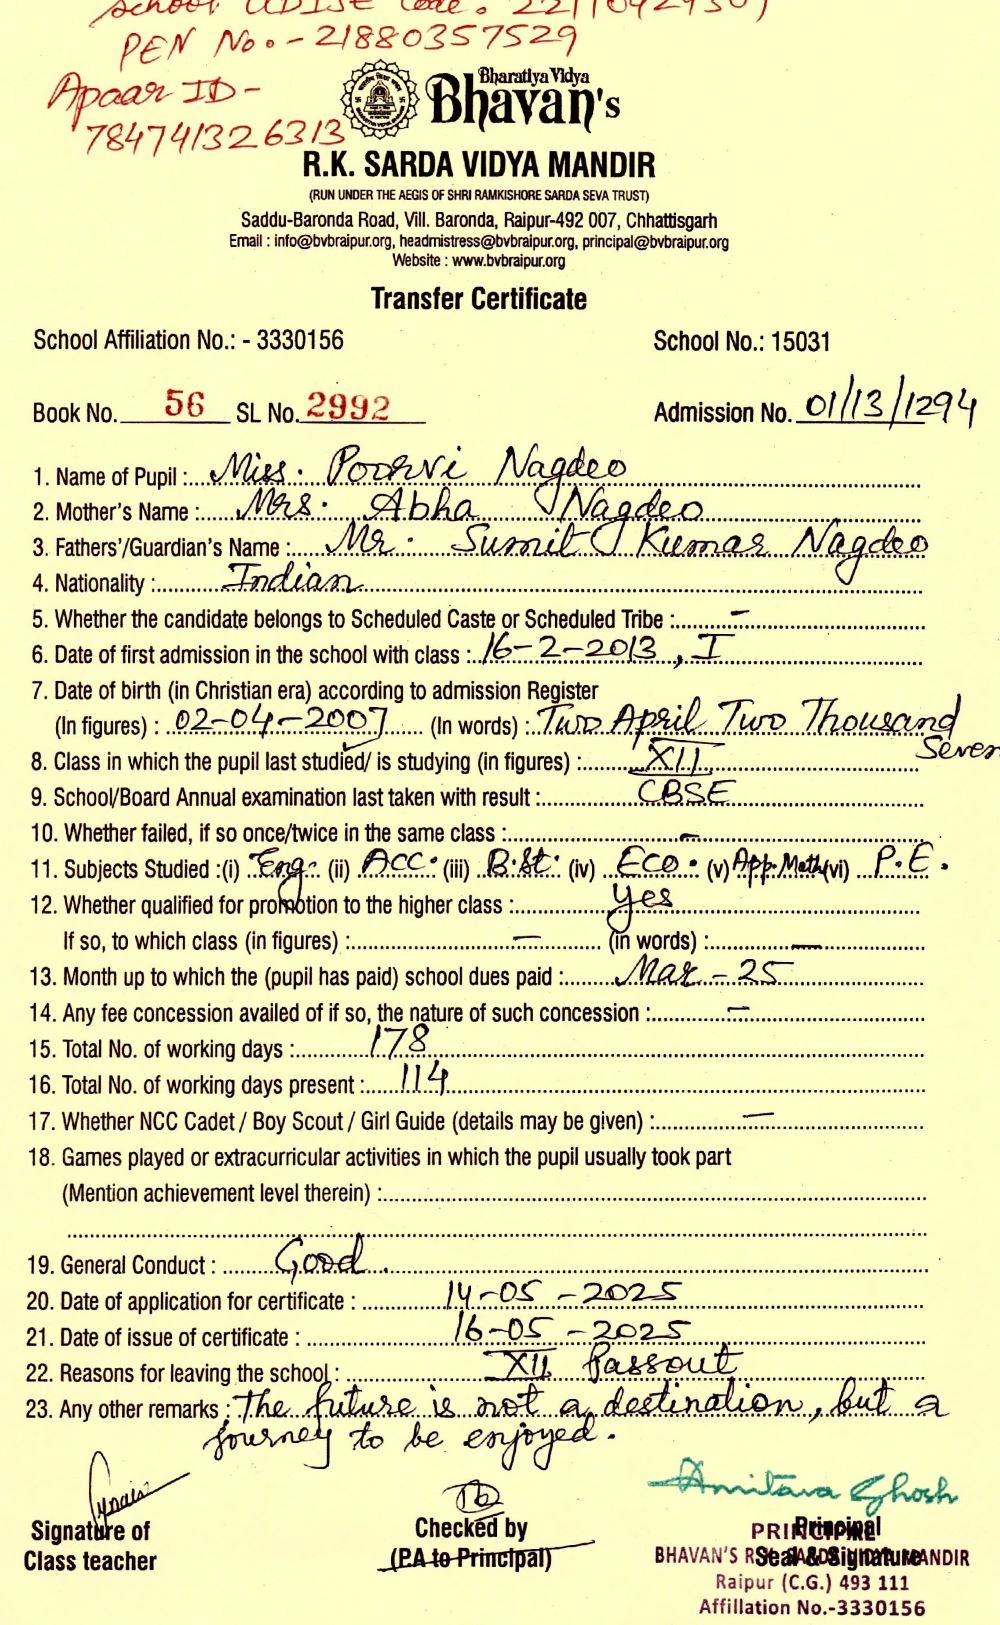 School UDISE Code.
PEN No. - 21880357529
Apaar ID -
784741326313
Bharatiya Vidya
Bhavan's
R.K. SARDA VIDYA MANDIR
(RUN UNDER THE AEGIS OF SHRI RAMKISHORE SARDA SEVA TRUST)
Saddu-Baronda Road, Vill. Baronda, Raipur-492 007, Chhattisgarh
Email : info@bvbraipur.org, headmistress@bvbraipur.org, principal@bvbraipur.org
Website : www.bvbraipur.org
Transfer Certificate
School Affiliation No.: - 3330156 School No.: 15031
Book No. 56 SL No. 2992 Admission No. 01/13/1294
1. Name of Pupil : Miss. Poorvi Nagdeo
2. Mother's Name : Mrs. Abha Nagdeo
3. Fathers'/Guardian's Name : Mr. Sumit Kumar Nagdeo
4. Nationality : Indian
5. Whether the candidate belongs to Scheduled Caste or Scheduled Tribe : -
6. Date of first admission in the school with class : 16-2-2013, I
7. Date of birth (in Christian era) according to admission Register
(In figures) : 02-04-2007 (In words) : Two April Two Thousand
Seven
8. Class in which the pupil last studied/ is studying (in figures) : XII
9. School/Board Annual examination last taken with result : CBSE
10. Whether failed, if so once/twice in the same class : -
11. Subjects Studied :(i) Eng. (ii) ACC. (iii) B.St. (iv) Eco. (v) App. Math (vi) P.E.
12. Whether qualified for promotion to the higher class : Yes
If so, to which class (in figures) : - (in words) : -
13. Month up to which the (pupil has paid) school dues paid : Mar - 25
14. Any fee concession availed of if so, the nature of such concession : -
15. Total No. of working days : 178
16. Total No. of working days present : 114
17. Whether NCC Cadet / Boy Scout / Girl Guide (details may be given) : -
18. Games played or extracurricular activities in which the pupil usually took part
(Mention achievement level therein) :
19. General Conduct : Good.
20. Date of application for certificate : 14-05-2025
21. Date of issue of certificate : 16-05-2025
22. Reasons for leaving the school : XII Passout
23. Any other remarks : The future is not a destination, but a
journey to be enjoyed.
Amitava Ghosh
Signature of Checked by Principal
Class teacher (P.A to Principal) Seal & Signature
PRINCIPAL
BHAVAN'S R.K. SARDA VIDYA MANDIR
Raipur (C.G.) 493 111
Affillation No.-3330156